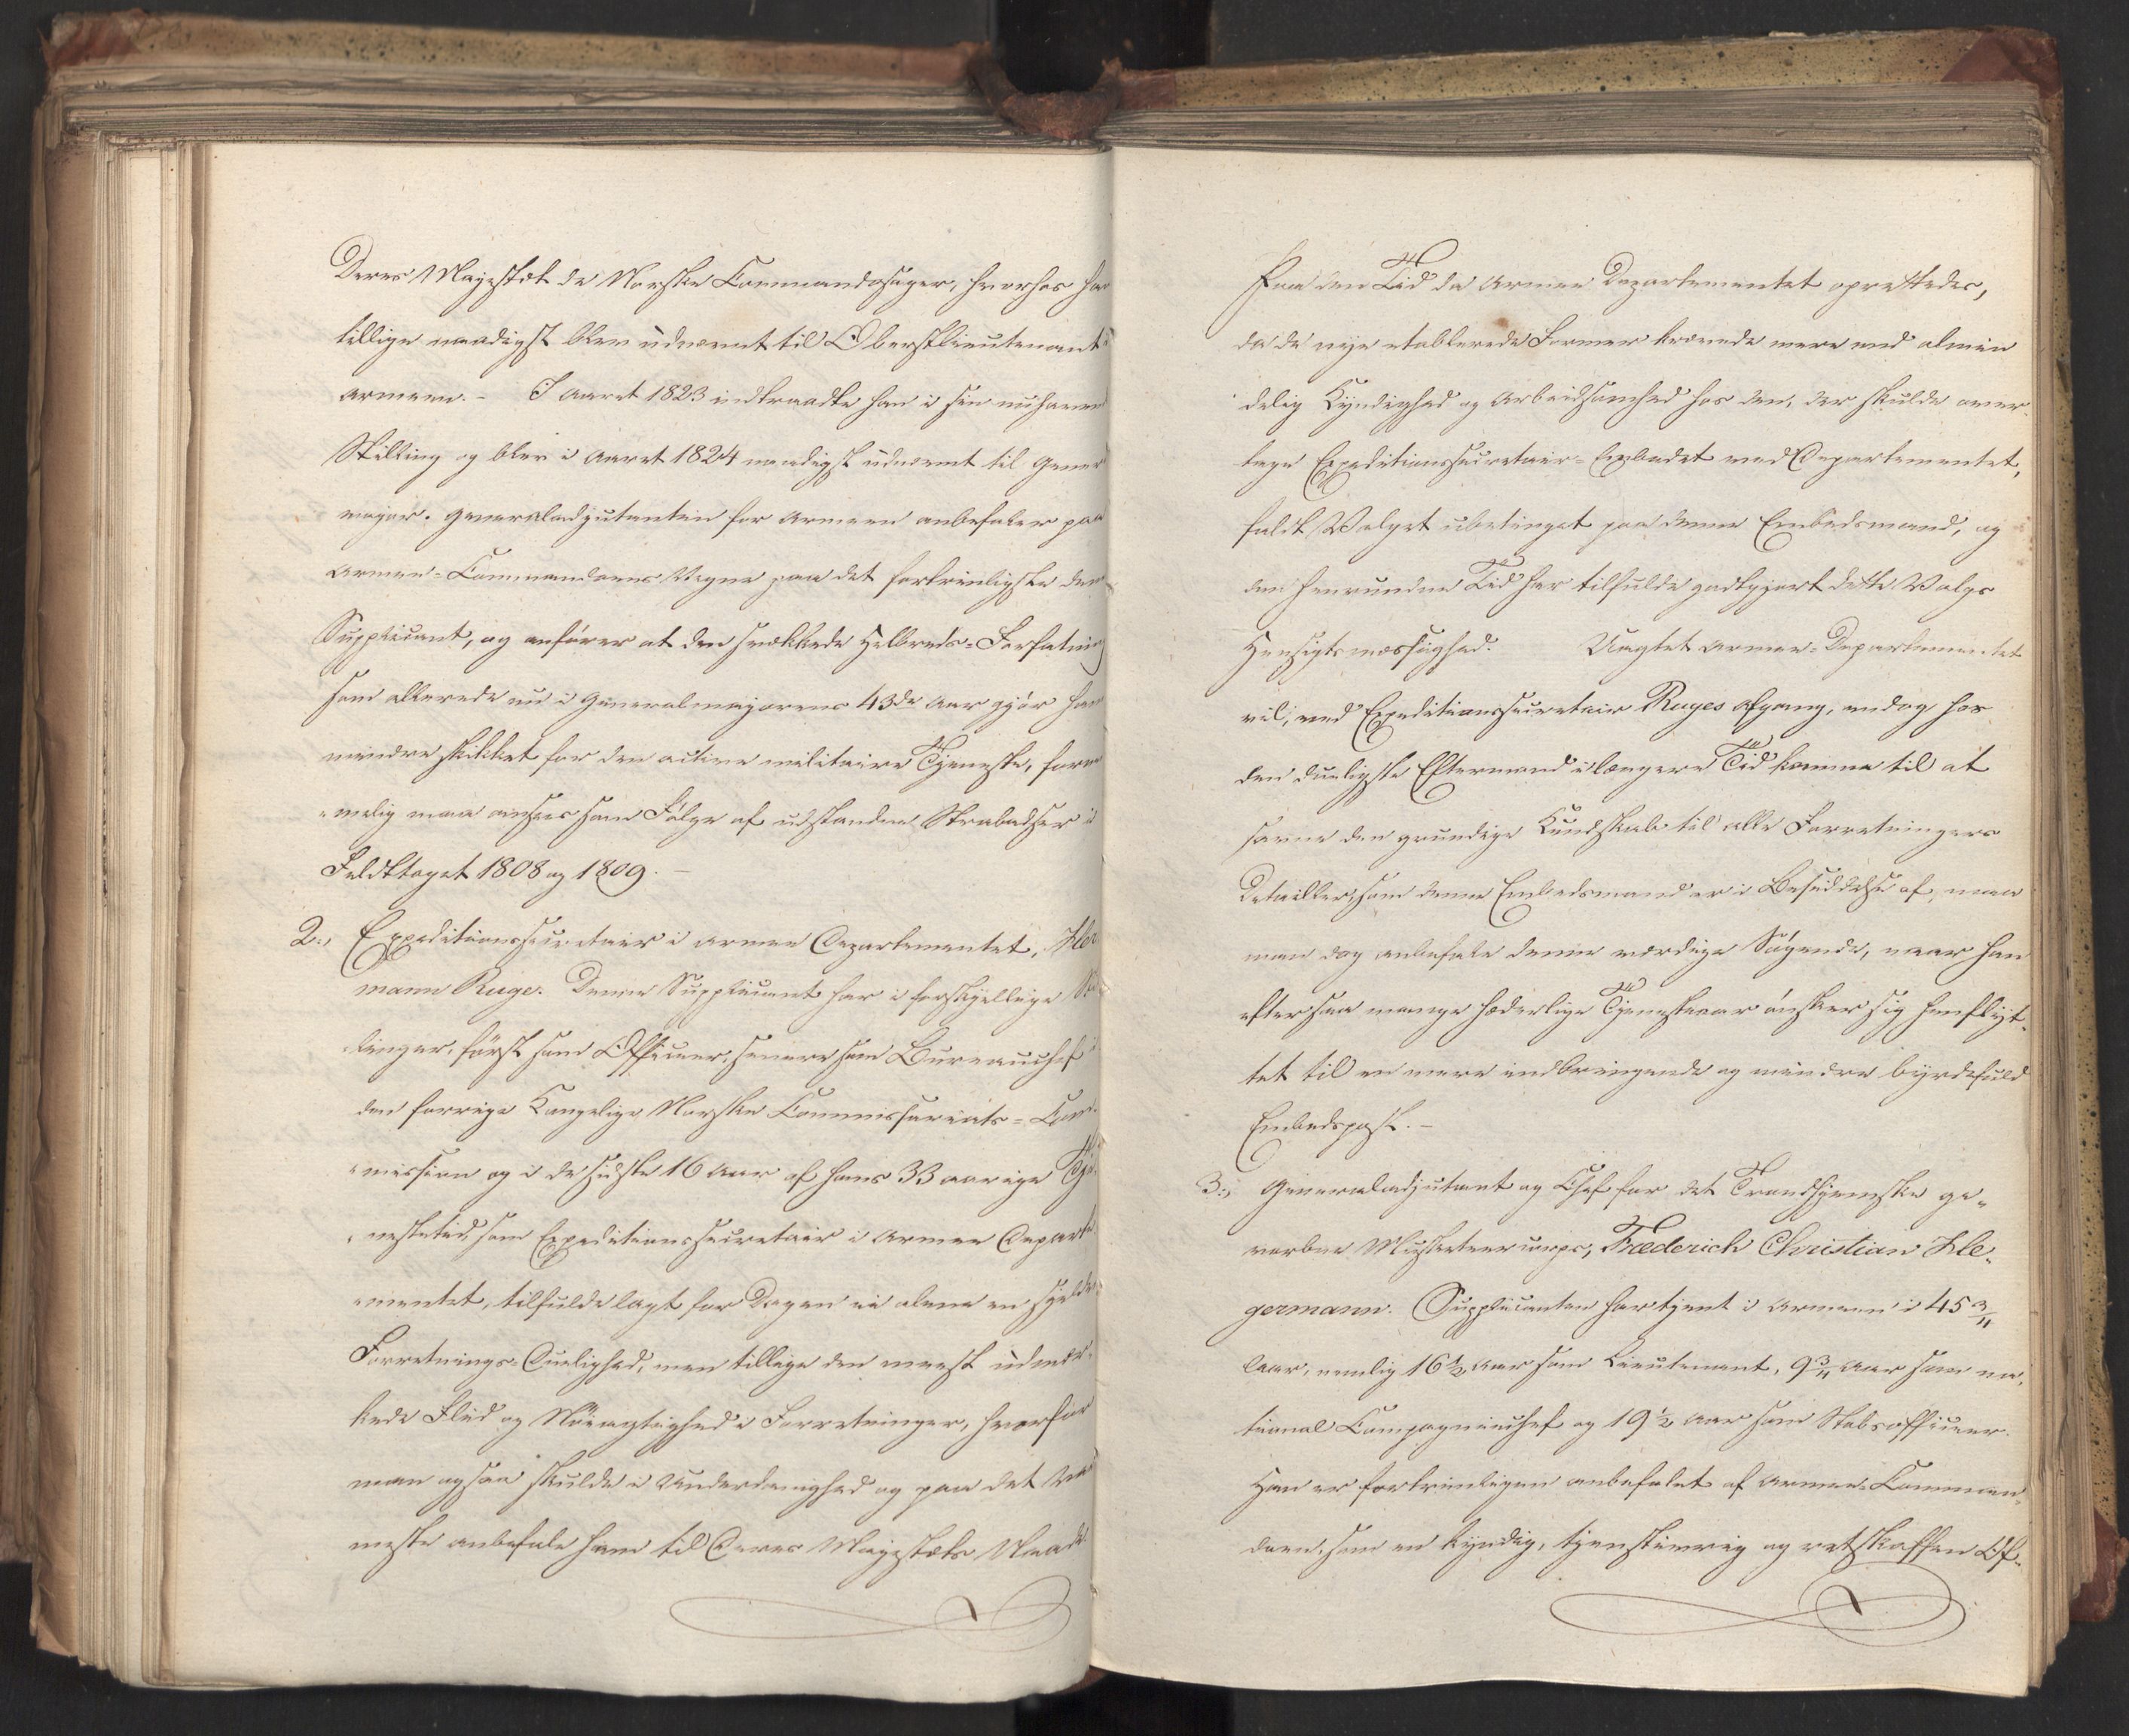 Deres Majestæt de Norske Commandosager, hvorhos han
tillige naadigst blev udnævnt til Oberstlieutenant i
Armeen. - I Aaret 1823 indtraadte han i sin nuhavende
Stilling og blev i Aaret 1824 naadigst udnævnt til General
major. Generaladjutanten for Armeen anbefaler paa
Armee-Commandoens Vegne paa det fortrinligste denne
Supplicant, og anfører at den svækkede Helbreds-Forfatning
som allerede nu i Generalmajorens 43de Aar gjør ham
mindre skikket for den active militaire Tjeneste, forne-
melig maa ansees som Følge af udstandne Strabadser i
Feldttoget 1808 og 1809. -
2., Expeditionssecretair i Armee Departementet, Her
mann Ruge. Denne Supplicant har i forskjellige Stil
linger, først som Officeer, senere som Bureauchef i
den forrige Kongelige Norske Commissariats-Com-
mission og i de sidste 16 Aar af hans 33 aarige Tje-
nestetid, som Expeditionssecretair i Armee Departe-
mentet, tilfulde lagt for Dagen ei alene en sjelden
Forretnings-Duelighed, men tillige den meest udmær-
kede Flid og Nøiagtighed i Forretninger, hvorfor
man ogsaa skulde i Underdanighed og paa det var
meste anbefale ham til Deres Majestæts Naade
Paa den Tid da Armee Departementet oprettedes,
da de nye etablerede Former krævede mere end almin
delig Kyndighed og Arbeidsomhed hos den, der skulde over-
tage Expeditionssecretair-Embedet ved Departementet,
faldt Valget ubetinget paa denne Embedsmand, og
den henrundne Tid har tilfulde godtgjort dette Valgs
Hensigtsmæssighed. Uagtet Armee-Departementet
vil, ved Expeditionssecretair Ruges Afgang, endog hos
den dueligste Eftermand i længere Tid komme til at
savne den grundige Kundskab til alle Forretningers
Detailler, som denne Embedsmand er i Besiddelse af, maa
man dog anbefale denne værdige Søgende, naar han
efter saa mange hæderlige Tjenesteaar ønsker sig henflyt-
tet til en mere indbringende og mindre byrdefuld
Embedspost. -
3., Generaladjutant og Chef for det Trondhjemske ge-
vorbne Musketeercorps, Fræderich Christian He-
germann. Supplicanten har tjent i Armeen i 45 3/11
Aar, nemlig 16 1/2 Aar som Lieutenant, 9 3/11 Aar som na-
tional Compagniechef og 19 1/2 Aar som Stabsofficeer.
Han er fortrinligen anbefalet af Armee-Comman-
doen, som en kyndig, tjenstivrig og retskaffen Of-